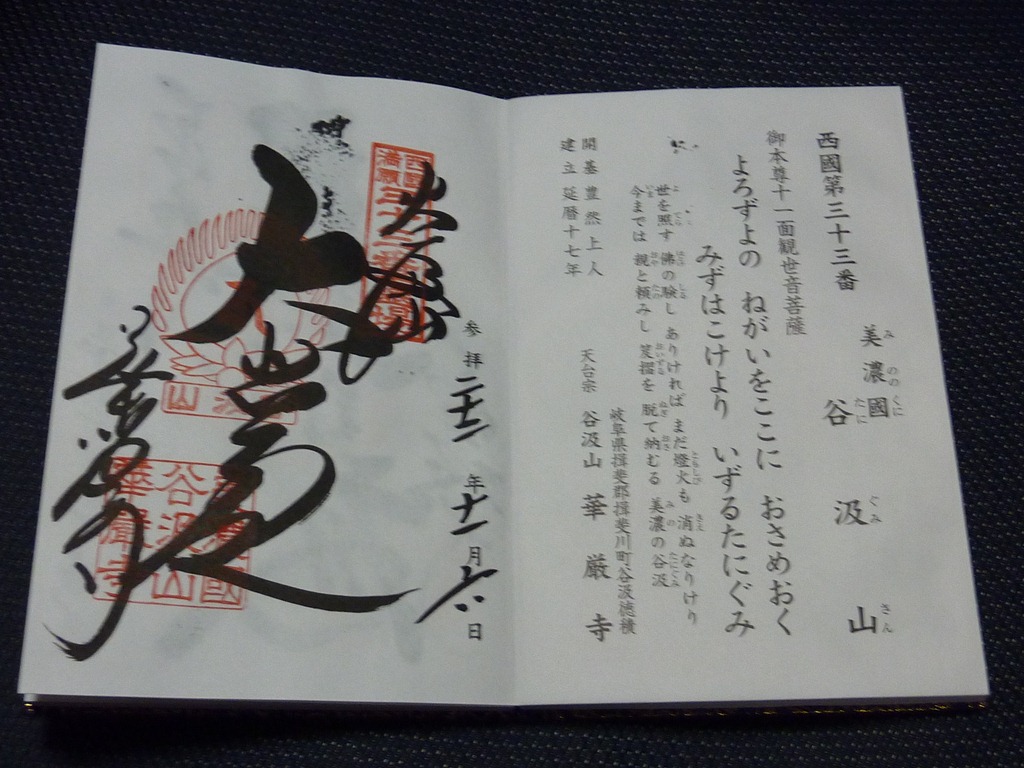 西國第三十三番
美濃國
谷汲山
御本尊十一面観世音菩薩
よろずよの ねがいをここに おさめおく
みずはこけより いずるたにぐみ
世を照す 佛の験し ありければ まだ燈火も 消ぬなりけり
今までは 親と頼みし 笈摺を 脱て納むる 美濃の谷汲
開基 豊然上人
建立 延暦十七年
岐阜県揖斐郡揖斐川町谷汲徳積
天台宗 谷汲山 華厳寺
参拝二十二年十一月六日
奉拝
大悲
西國
満願
三十三番
谷汲山
華嚴寺